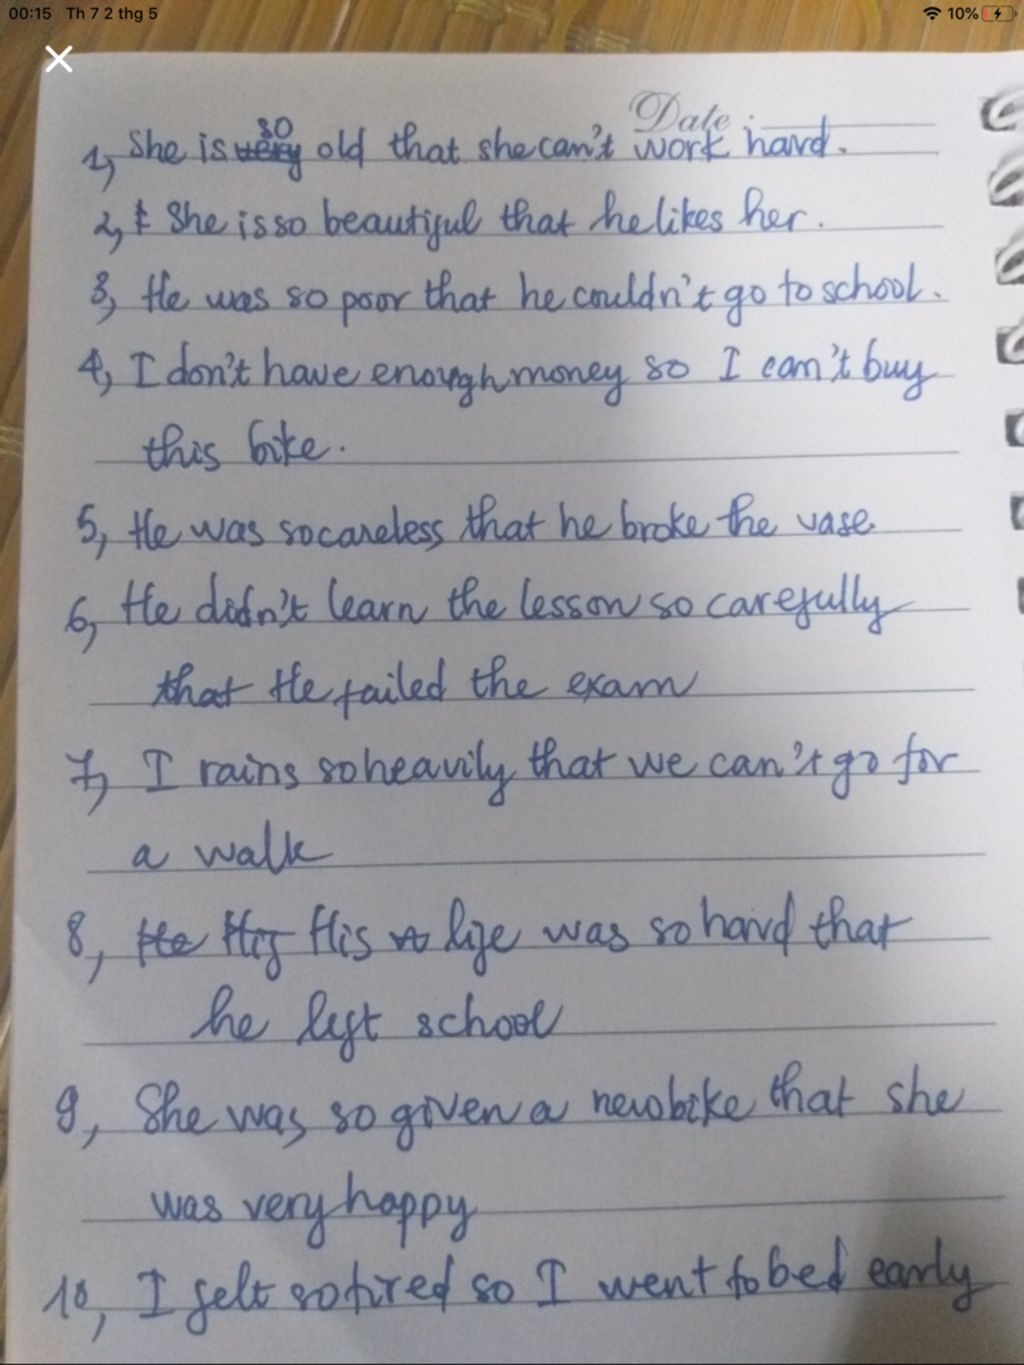 00:15 Th 7 2 thg 5 10%
Date
1, She is very so old that she can't work hard.
2, & She is so beautiful that he likes her.
3, He was so poor that he couldn't go to school.
4, I don't have enough money so I can't buy
this bike.
5, He was so careless that he broke the vase
6, He didn't learn the lesson so carefully
that He failed the exam
7, I rains so heavily that we can't go for
a walk
8, He His His life was so hard that
he left school
9, She was so given a new bike that she
was very happy
10, I felt so tired so I went to bed early